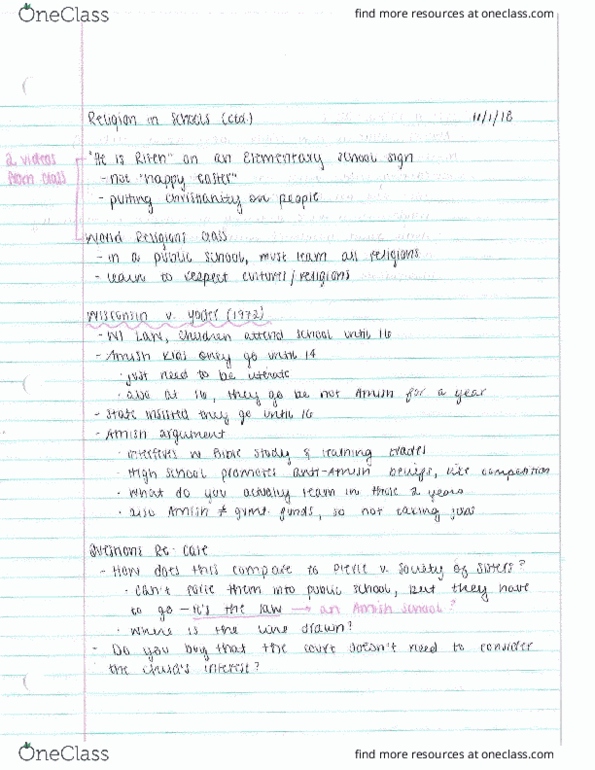 OneClass
find more resources at oneclass.com
Religion in Schools (ctd.) 11/1/18
2 videos from class
"He is Risen" on an Elementary School sign
- not "happy easter"
- putting Christianity on people
World Religions class
- in a public school, must learn all religions
- learn to respect cultures/religions
Wisconsin v. Yoder (1972)
- WI Law, children attend school until 16
- Amish kids only go until 14
· just need to be literate
· also at 16, they go be not Amish for a year
- State insisted they go until 16
- Amish argument
· interferes w Bible study & training trades
· High school promotes anti-Amish beliefs, like competition
· What do you actually learn in those 2 years
· also Amish ≠ gvmt. funds, so not taking
Questions Re: Case
- How does this compare to Pierce v. Society of Sisters?
· can't force them into public school, but they have
to go - it's the law → an Amish school?
· Where is the line drawn?
- Do you buy that the court doesn't need to consider
the child's interest?
OneClass
find more resources at oneclass.com